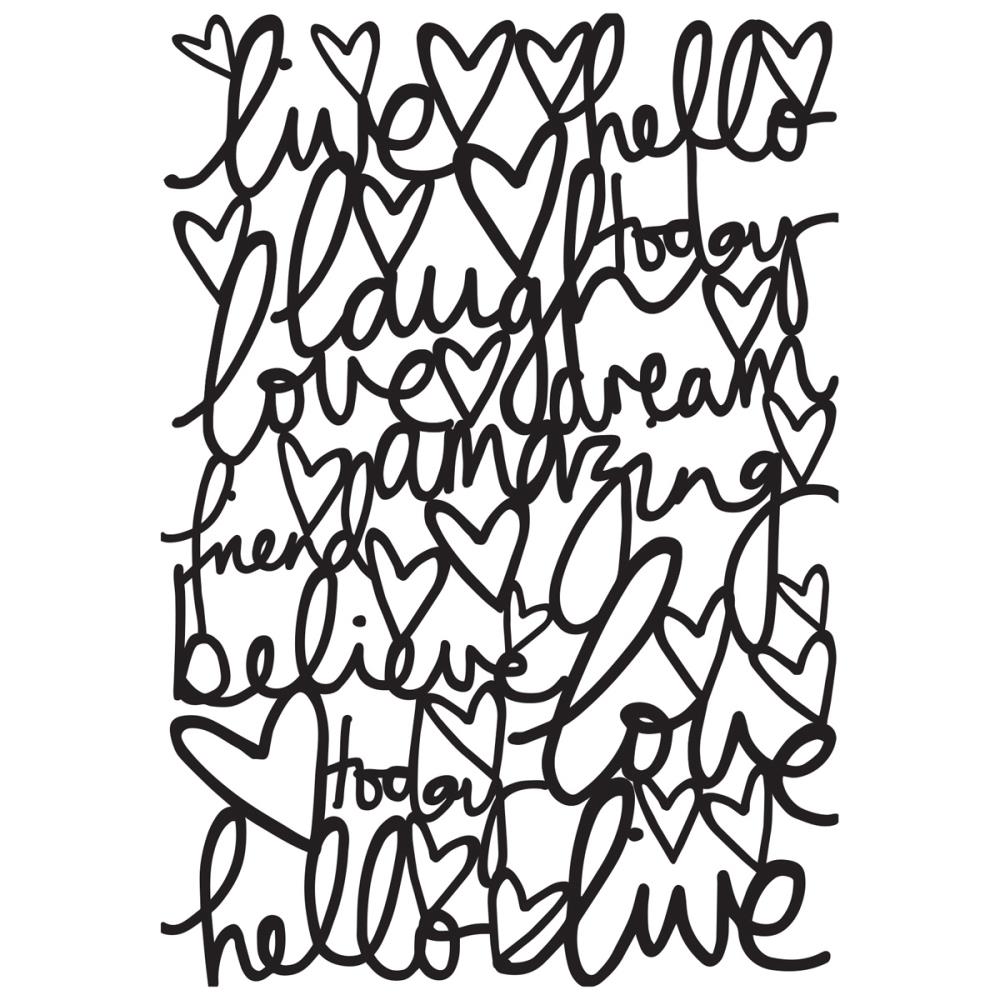 live hello
today
laugh
love dream
amazing
friend
believe
love
today
hello live